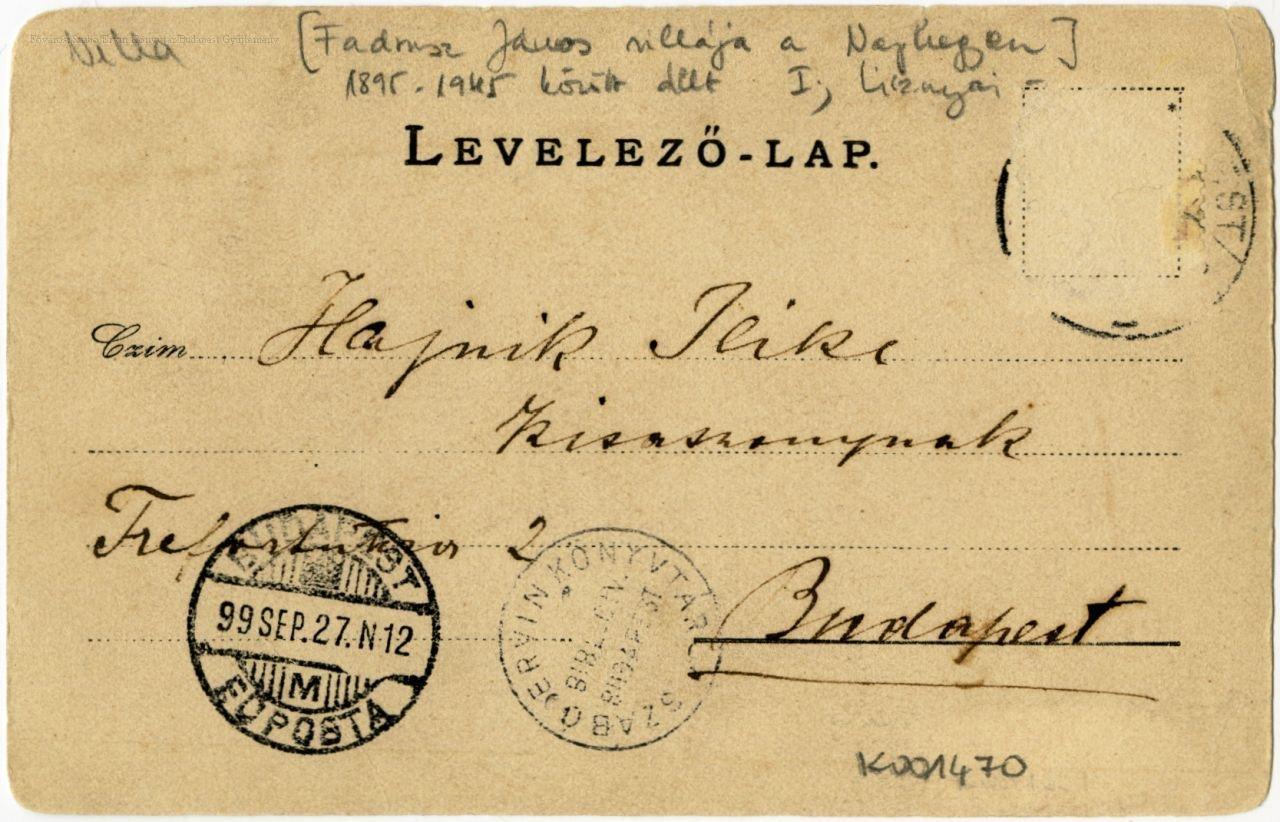 Fővárosi Szabó Ervin Könyvtár/Budapest Gyűjtemény
[Fadrusz János villája a Naphegyen]
1895-1945 között állt I;
LEVELEZŐ-LAP.
*
Czim Hajnik Ilike
Kisasszonynak
Trefort utcza 2
Budapest
BUDAPEST
99 SEP. 27. N 12
M
FŐPOSTA
SZABÓ ERVIN KÖNYVTÁR
BUDAPEST
K001470